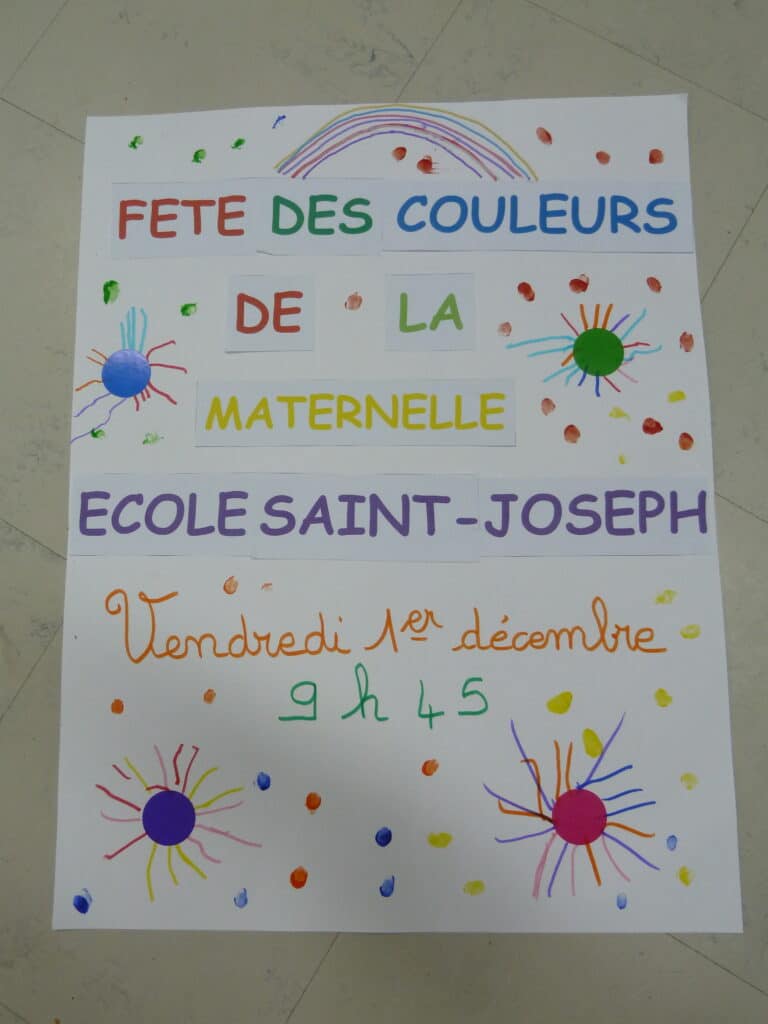 FETE DES COULEURS
DE LA
MATERNELLE
ECOLE SAINT-JOSEPH
Vendredi 1er décembre
9 h 45